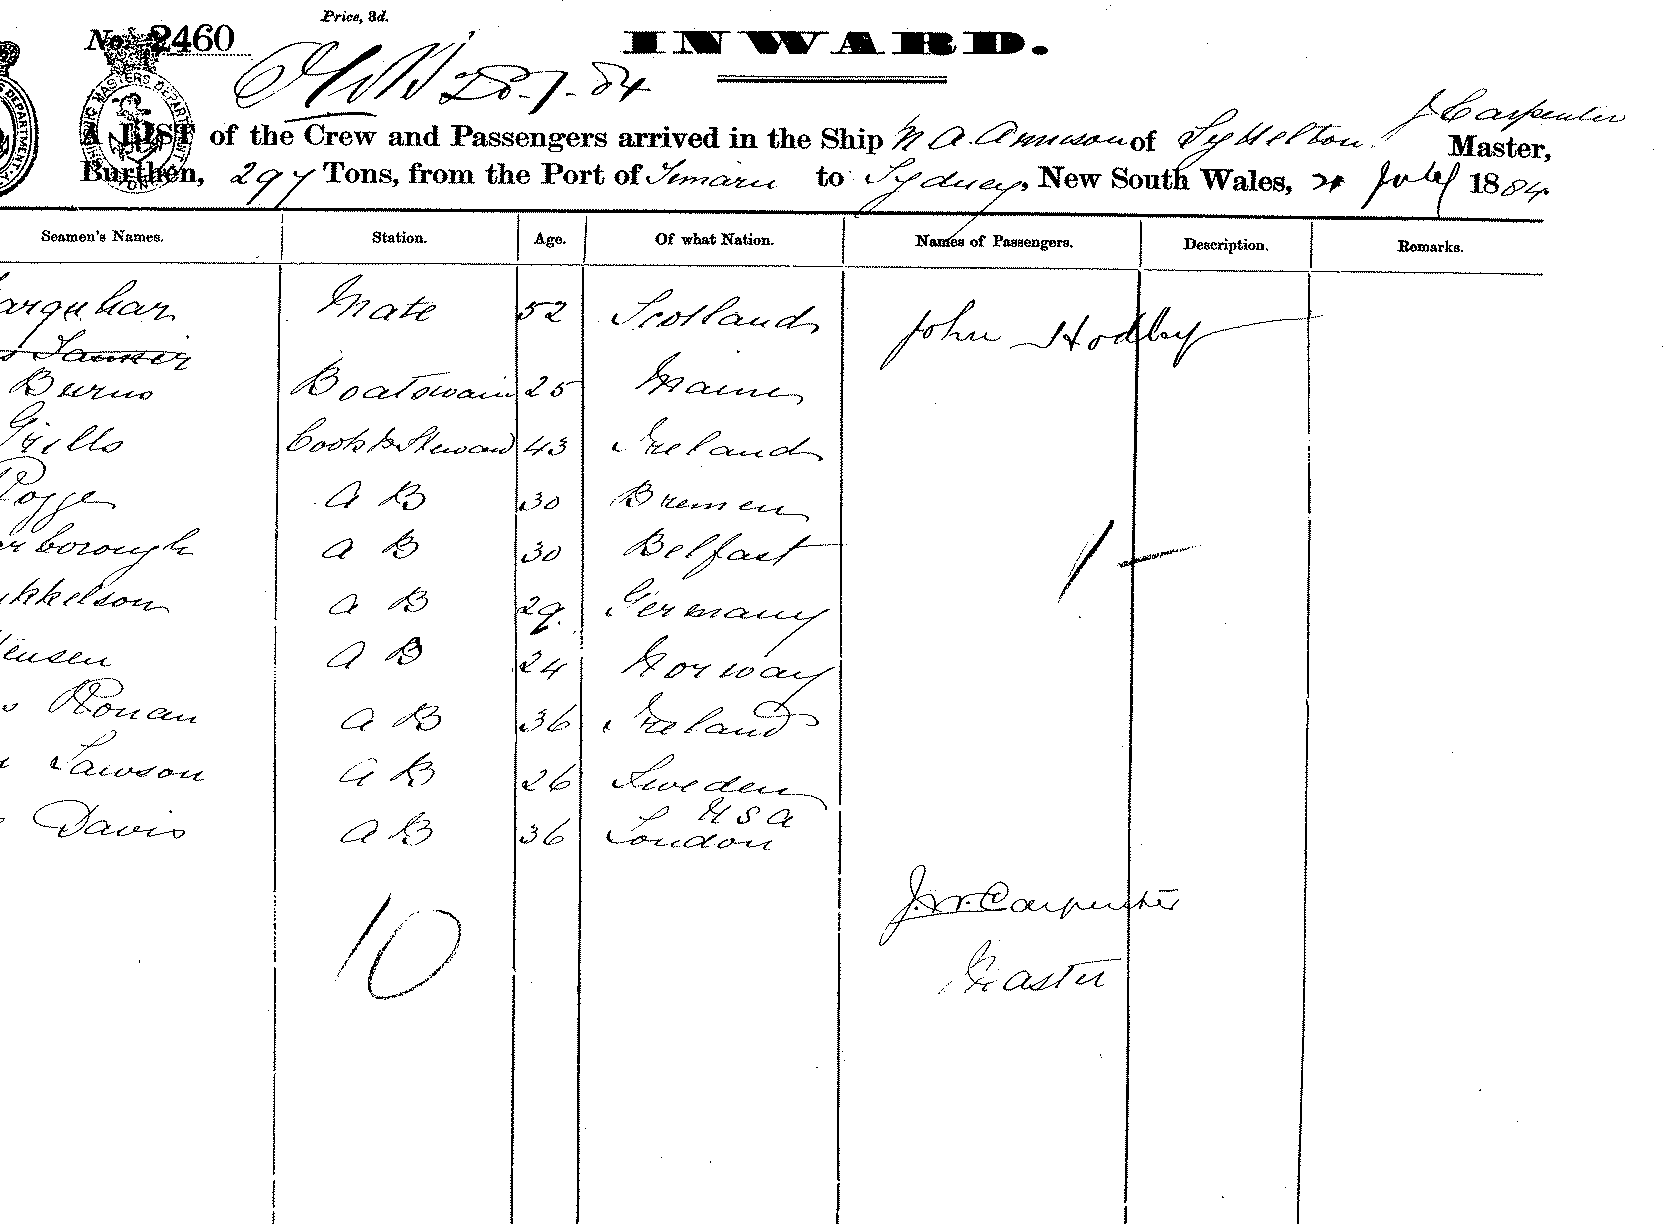 Price, 3d.
No. 2460
INWARD.
28-7-84
J Carpenter
A LIST of the Crew and Passengers arrived in the Ship of Lyttelton Master,
Burthen, 297 Tons, from the Port of Timaru to Sydney, New South Wales, July 1884
Seamen's Names. Station. Age. Of what Nation. Names of Passengers. Description. Remarks.
arquhar Mate 52 Scotland John Hodby
Burns Boatswain 25 Maine
Grills Cook & Steward 43 Ireland
Pogge A B 30 Bremen
arborough A B 30 Belfast
1 —
ikkelson A B 29. Germany
Jensen A B 24 Norway
s Ronan A B 36 Ireland
Lawson A B 26 Sweden
U S A
Davis A B 36 London
J. W. Carpenter
10
Master